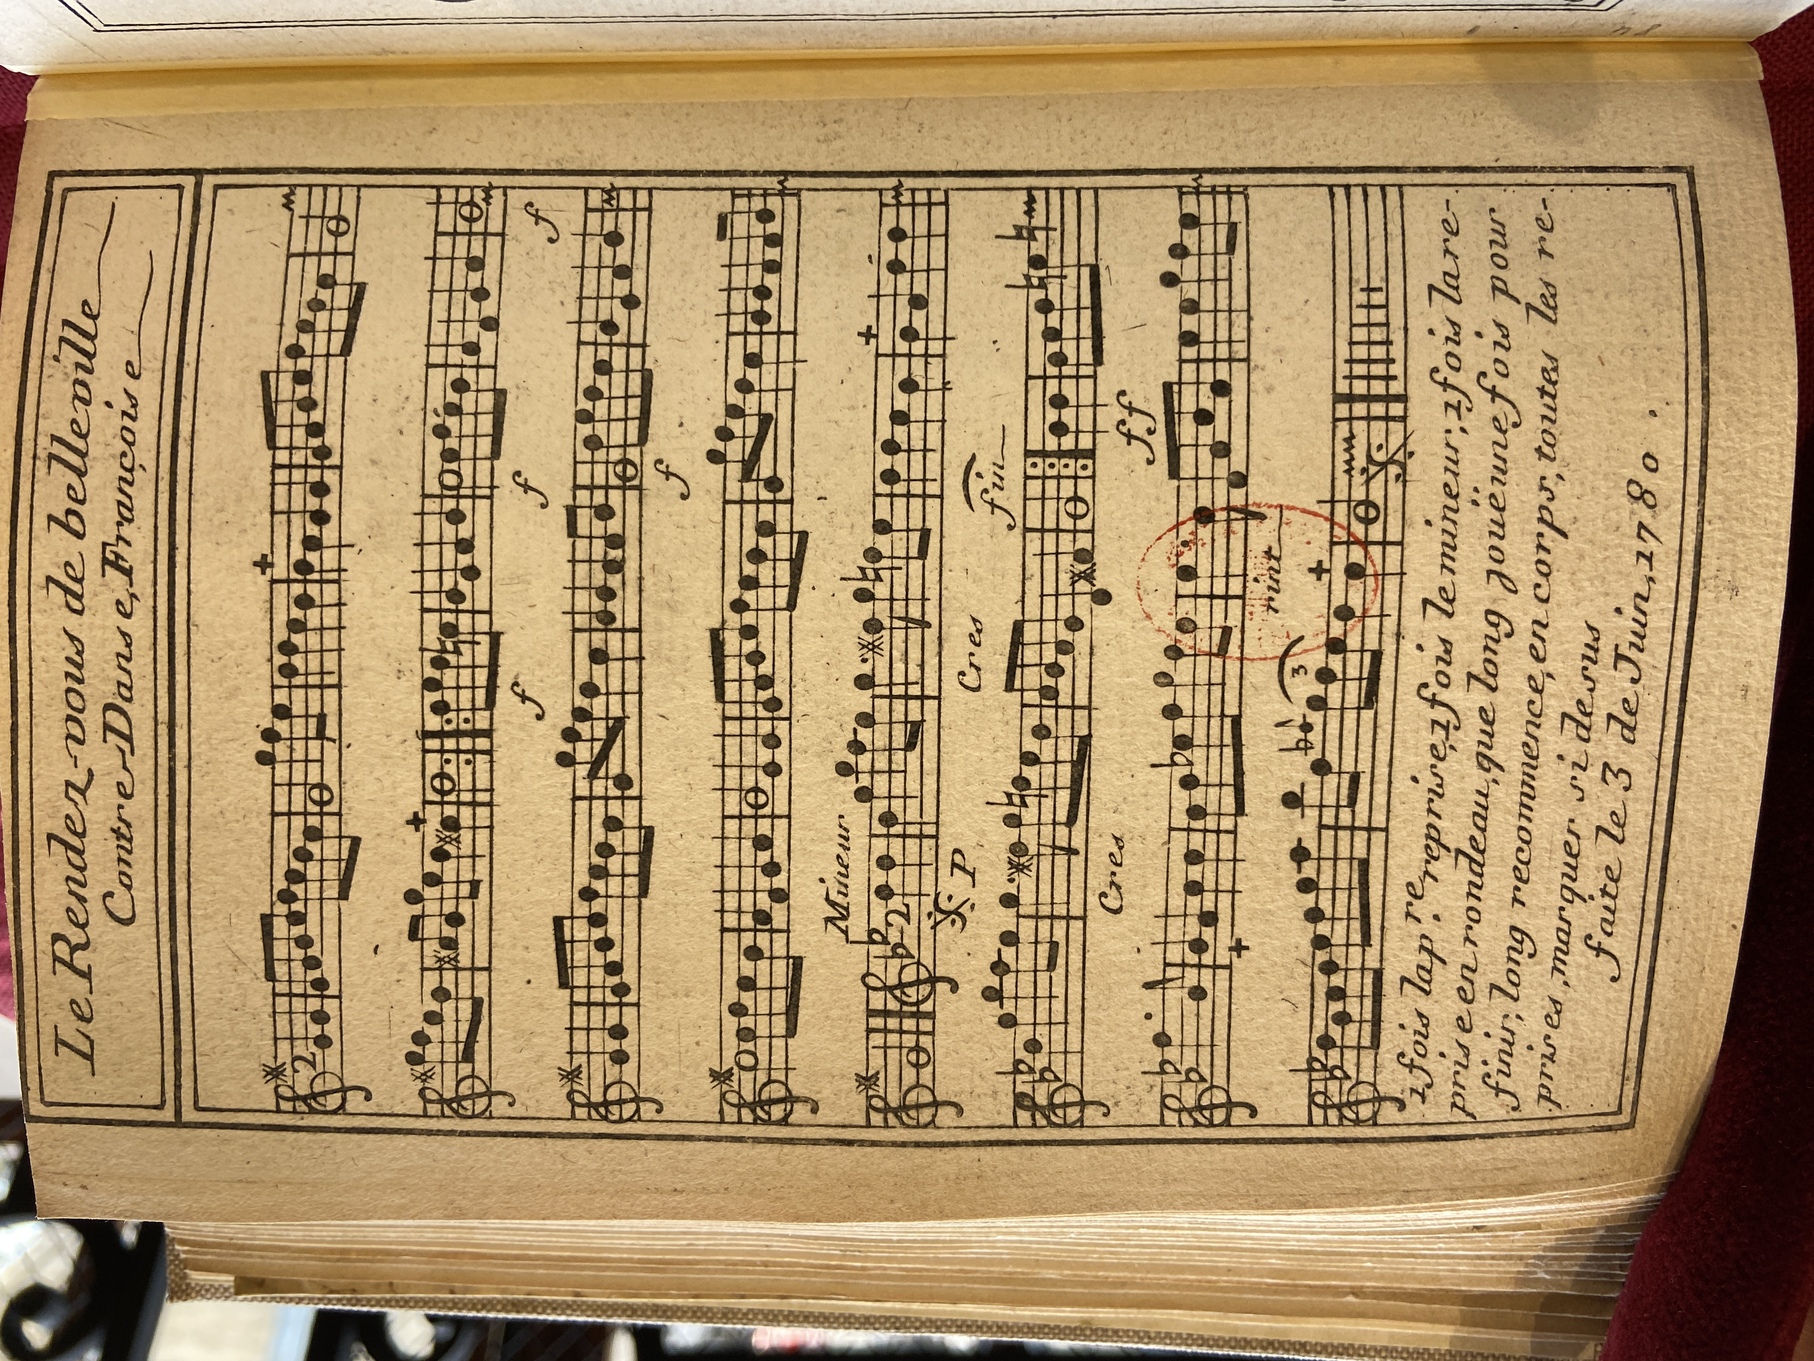 Le Rendez-vous de belleville
Contre-Danse, Françoise
2
+
+
f
f
f
f
Mineur
2
P
+
Cres
fin
Cres
ff
+
+
3
1 fois la pre. reprise, 1 fois le mineur, 1 fois la re-
prise en rondeau, que long joüe une fois pour
finir, long recommence, en corps, toutes les re-
prises, marquer si desus
faite le 3 de Juin, 1780.